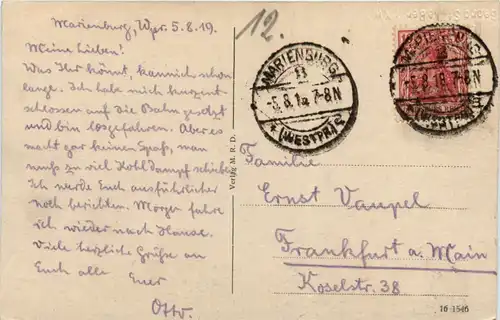 Marienburg, Wpr. 5.8.19.
Meine Lieben!
Was Ihr könnt, kann ich schon
lange. Ich hab mich kurzent-
schlossen auf die Bahn gesetzt
und bin losgefahren. Aber es
macht gar keinen Spaß, man
muß zu viel Kohldampf schieben.
Ich werde Euch ausführlicher
noch berichten. Morgen fahre
ich wieder nach Hause.
Viele herzliche Grüße an
Euch alle Euer
Otto.
12.
MARIENBURG
-5.8.19 7-8N
* (WESTPR.)
MARIENBURG
-5.8.19 7-8N
(WESTPR.)
Verlag M. R. D.
Familie
Ernst Vaupel
Frankfurt a. Main
Koselstr. 38
16 1546